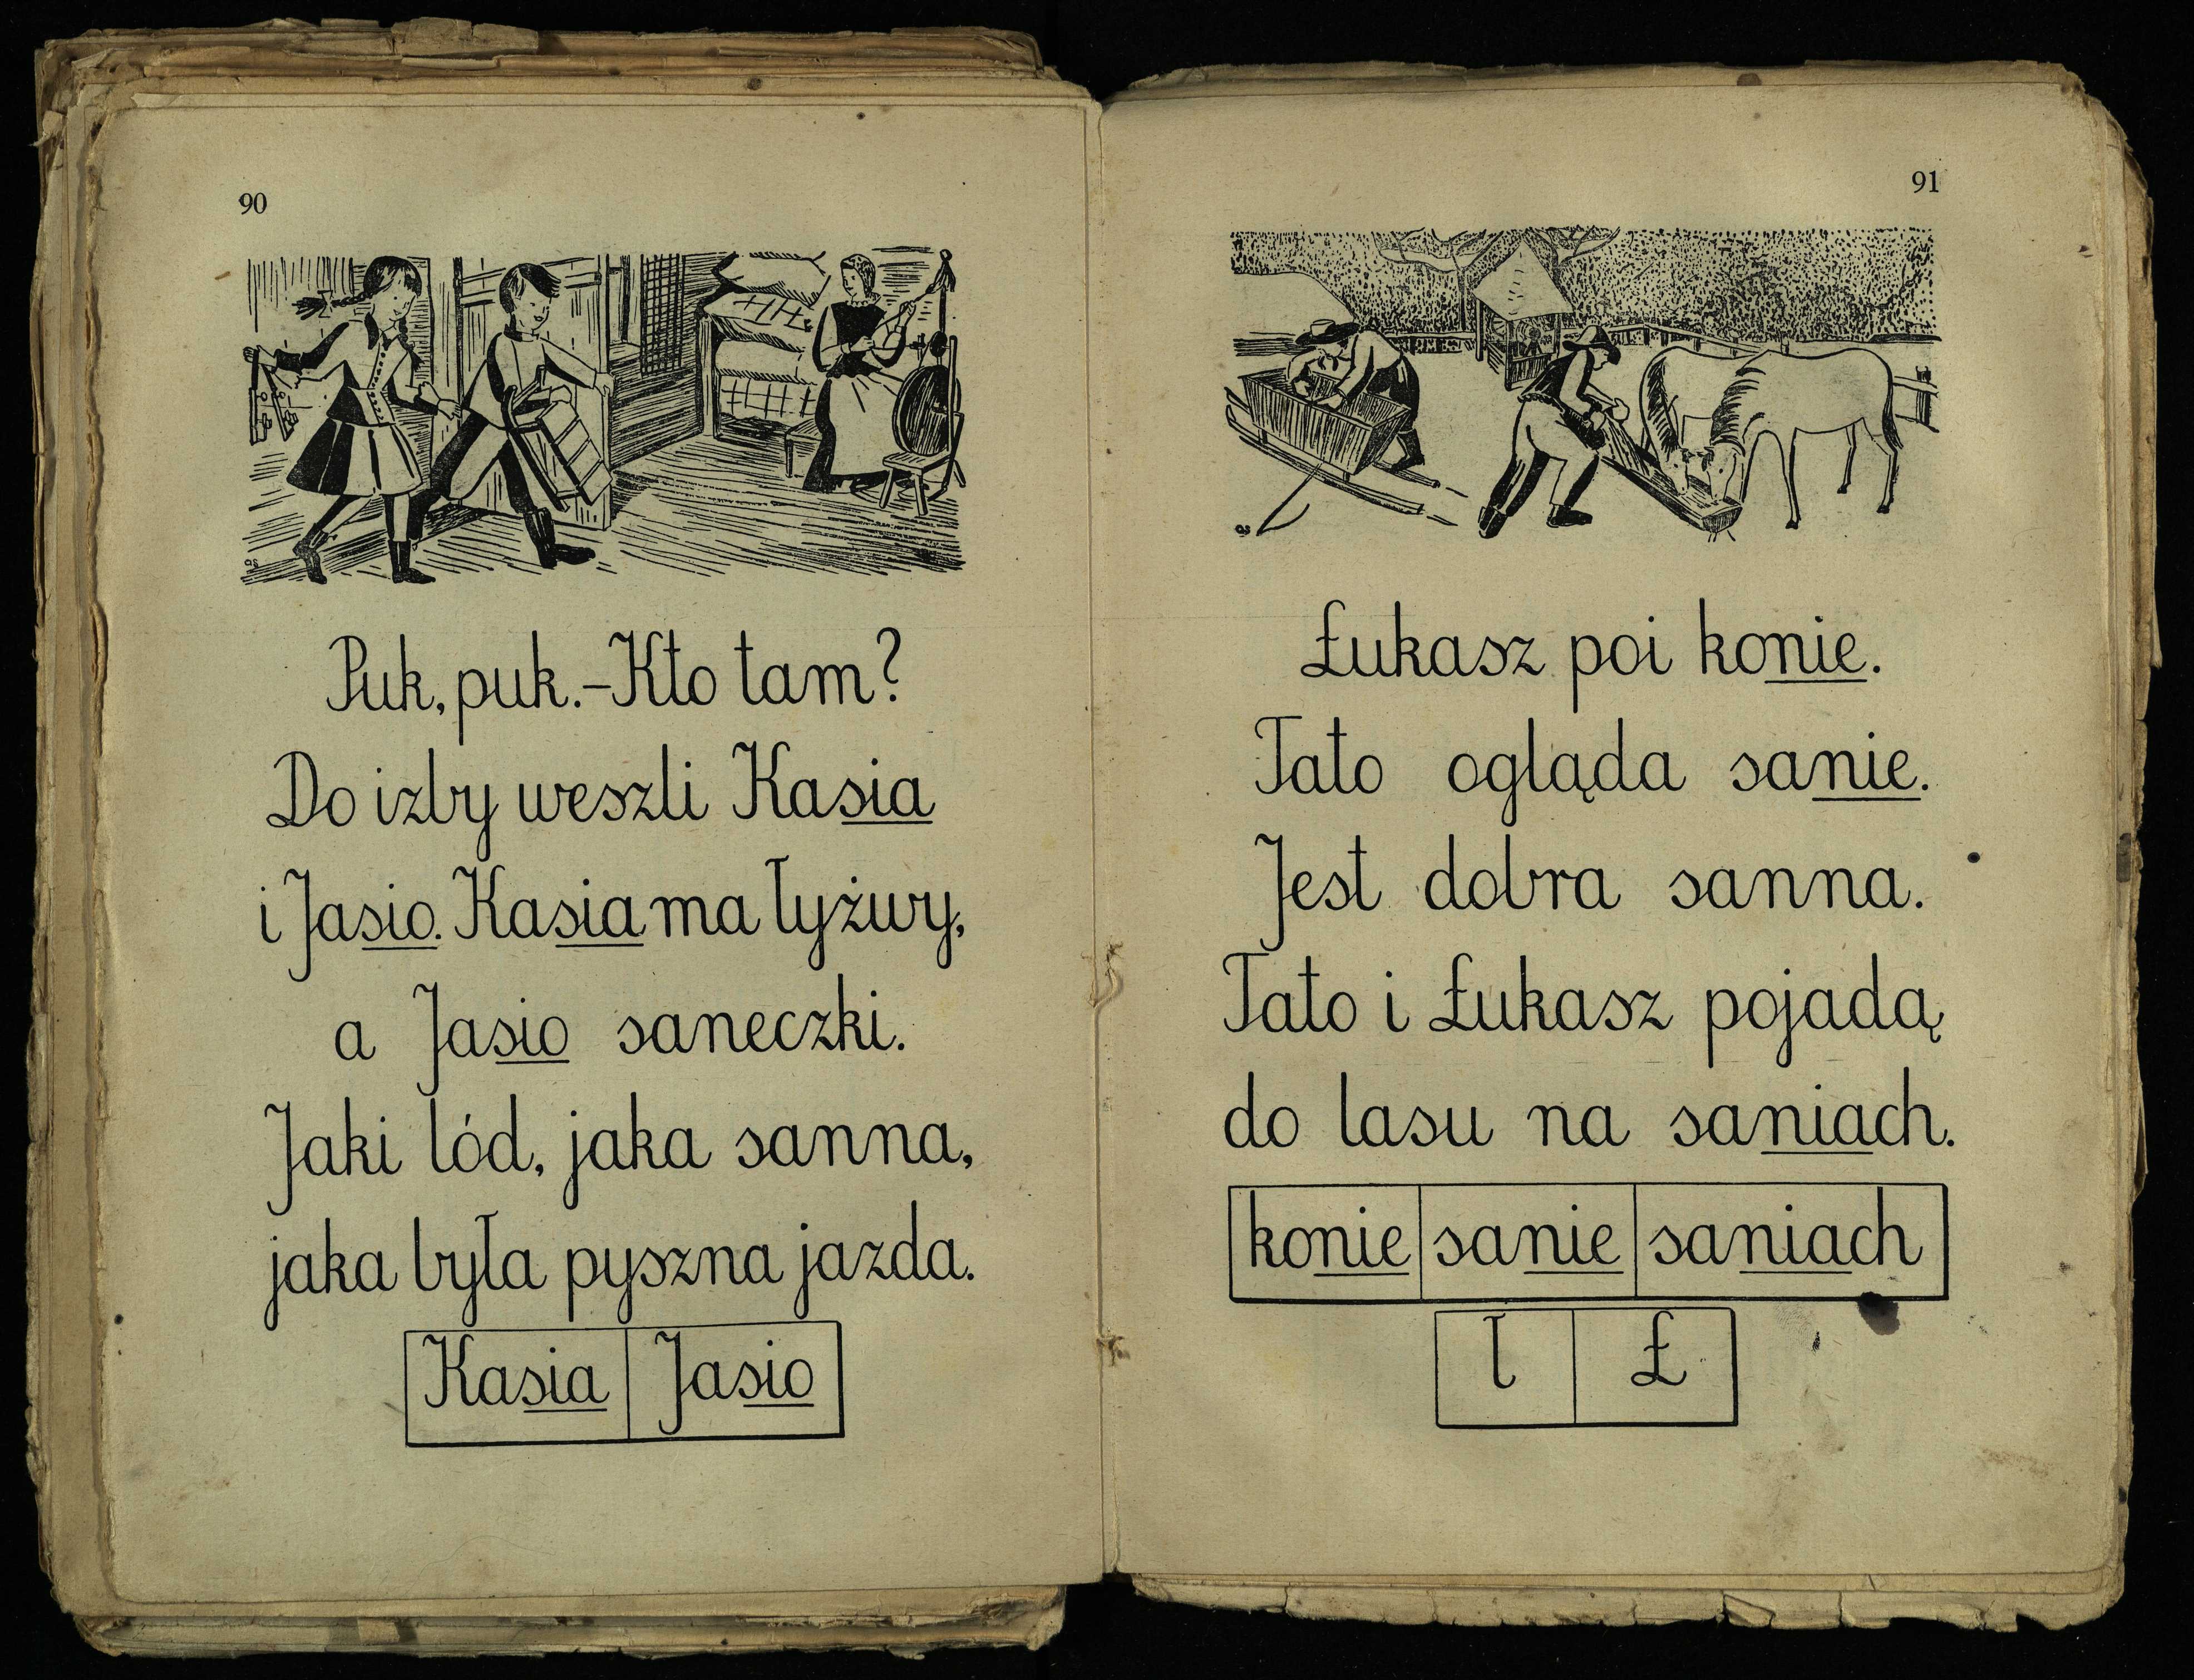 90
Puk, puk. – Kto tam?
Do izby weszli Kasia
i Jasio. Kasia ma łyżwy,
a Jasio saneczki.
Jaki lód, jaka sanna,
jaka była pyszna jazda.
Kasia Jasio
91
Łukasz poi konie.
Tato ogląda sanie.
Jest dobra sanna.
Tato i Łukasz pojadą
do lasu na saniach.
konie sanie saniach
ł Ł